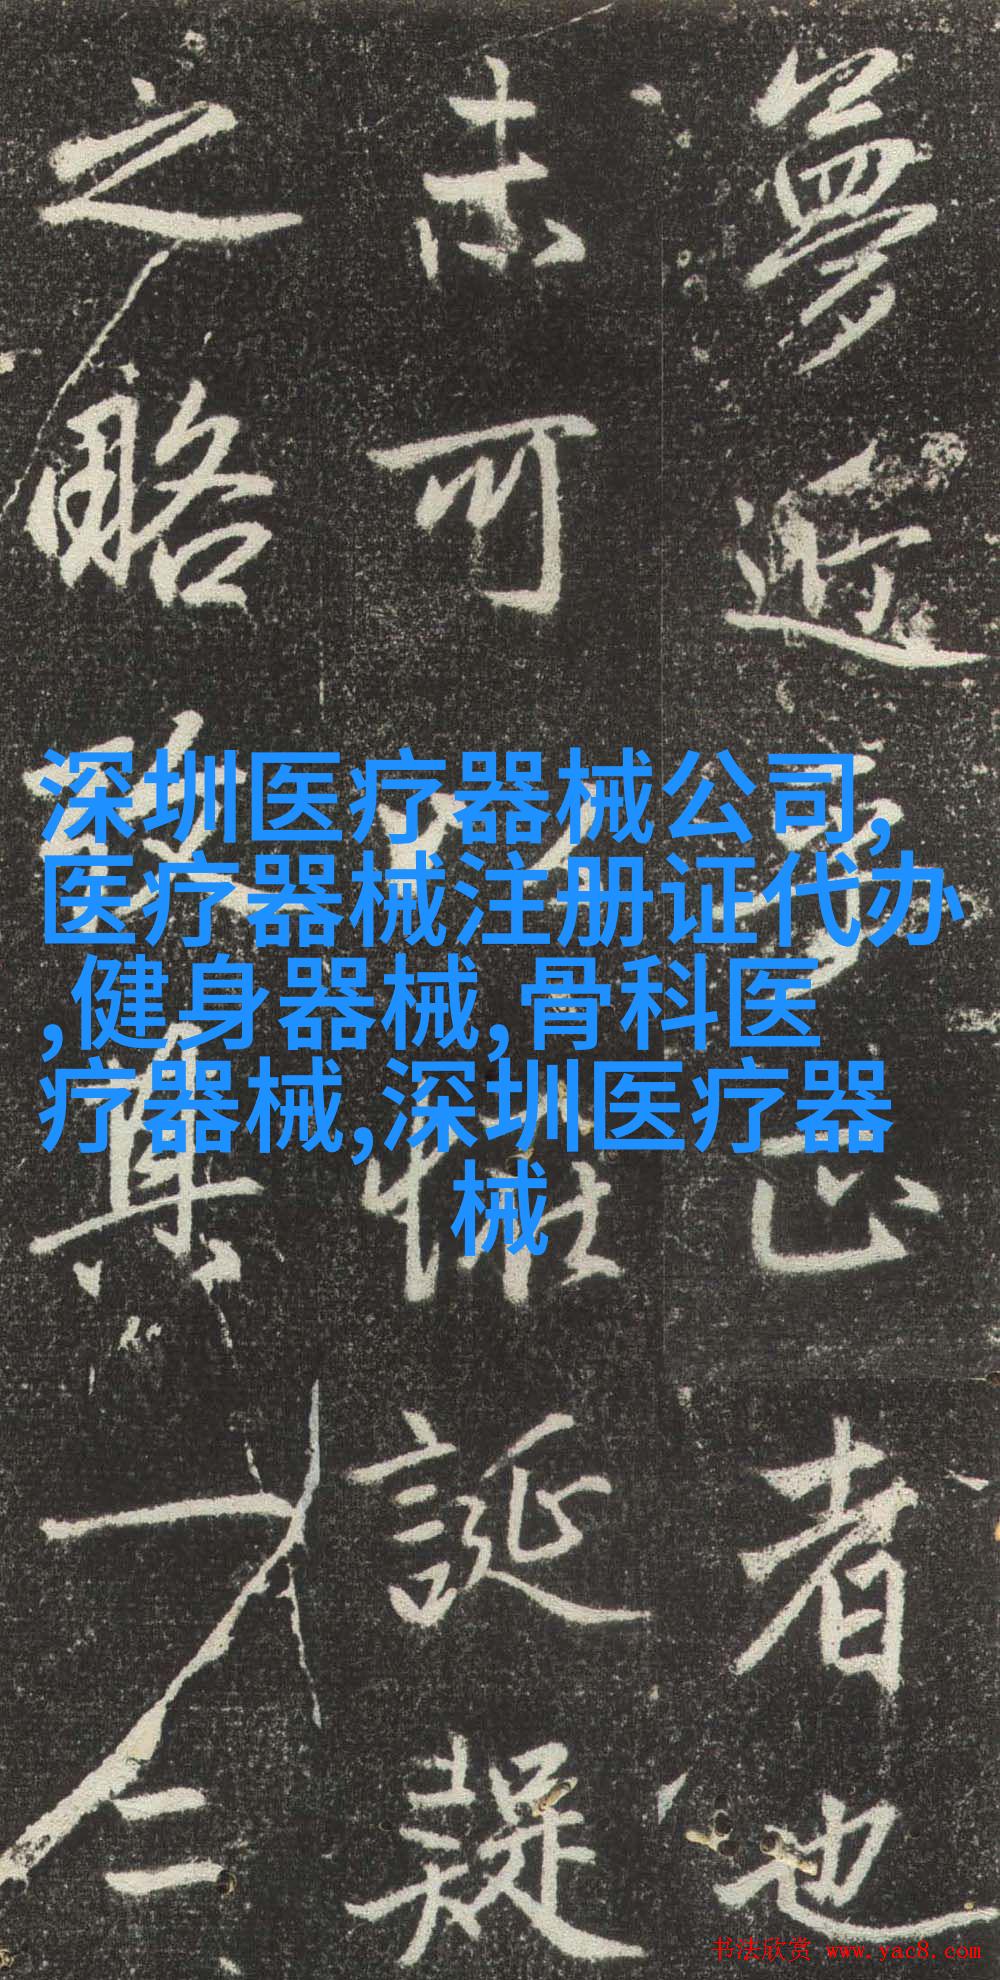 夢近夢正者也
赤可以怪誕疑
之略致真一二
深圳医疗器械公司,
医疗器械注册证代办
,健身器械,骨科医
疗器械,深圳医疗器
械
书法欣赏 www.yac8.com